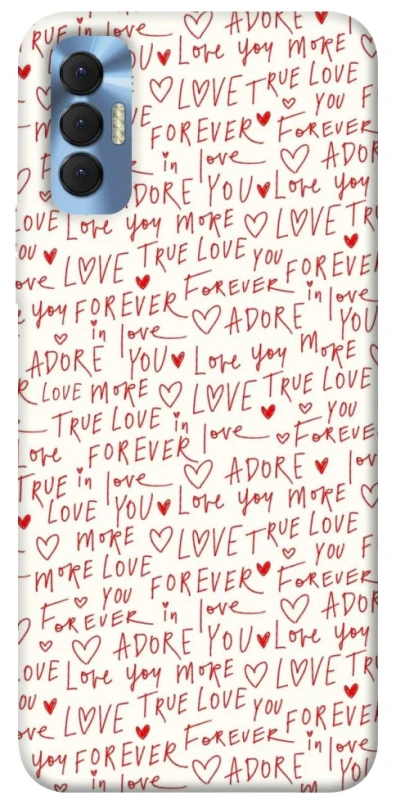 RUE in love ADORE
YOU Love you MORE
LOVE TRUE LOVE
VE YOU F
M FOREVER FOREVER
in love ADOR
DORE YOU Love you
LOVE Love you MORE LOVE TRU
OU TRUE LOVE YOU
ove LOVE FOREVER FOREVER
you FOREVER in love
in love ADORE YOU
ADORE YOU Love you MORE
R LOVE MORE LOVE TRUE LOVE
TRUE LOVE in YOU
ove FOREVER love FOREVE
TRUE in love ADORE lov
LOVE YOU Love you MORE
MORE LOVE TRUE LOVE
MORE LOVE YOU F
YOU FOREVER FOREVER
FOREVER in love ADOR
ADORE YOU Love you
OVE Love you MORE LOVE TRU
OU TRUE LOVE YOU
ove LOVE FOREVER FOREVER
you FOREVER in love
in love ADORE YOU